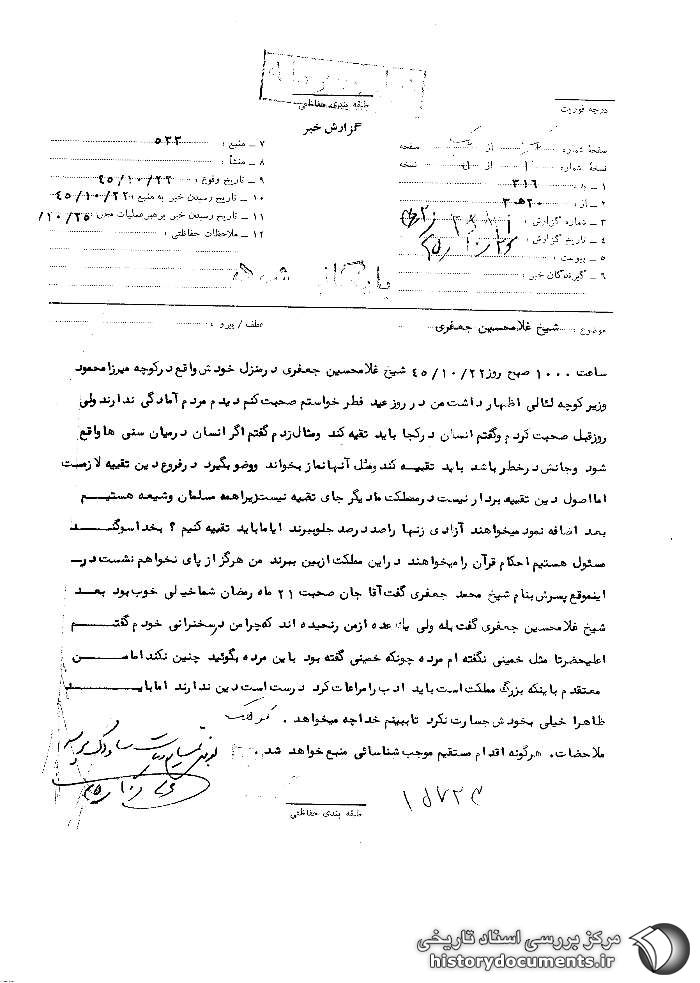 طبقه بندی حفاظتی
گزارش خبر
درجه فوریت
صفحهٔ شماره از صفحه
نسخهٔ شماره ۱ از نسخه
۱ ـ به : ۳۱۶
۲ ـ از : ۲۰هـ۳
۳ ـ شماره گزارش :
۴ ـ تاریخ گزارش :
۵ ـ پیوست :
۶ ـ گیرندگان خبر :
۷ ـ منبع : ۵۳۳
۸ ـ منشأ :
۹ ـ تاریخ وقوع : ۴۵/۱۰/۲۲
۱۰ ـ تاریخ رسیدن خبر به منبع : ۴۵/۱۰/۲۲
۱۱ ـ تاریخ رسیدن خبر برهبر عملیات محل /۱۰/۲۵
۱۲ ـ ملاحظات حفاظتی :
بایگانی شود
موضوع : شیخ غلامحسین جعفری عطف / پیرو :
ساعت ۱۰۰۰ صبح روز ۴۵/۱۰/۲۲ شیخ غلامحسین جعفری درمنزل خودش واقع درکوچه میرزامحمود
وزیر کوچه لئالی اظهار داشت من در روز عید فطر خواستم صحبت کنم دیدم مردم آمادگی ندارند ولی
روزقبل صحبت کردم وگفتم انسان درکجا باید تقیه کند ومثال زدم گفتم اگر انسان درمیان سنی ها واقع
شود وجانش درخطر باشد باید تقبیه کند ومثل آنها نماز بخواند ووضو بگیرد درفروع دین تقبیه لازمست
اما اصول دین تقبیه بردار نیست درمملکت مادیگر جای تقبیه نیست زیرا همه مسلمان وشیعه هستیم
بعد اضافه نمود میخواهند آزادی زنها را صد درصد جلوببرند ایا ما باید تقبیه کنیم ؟ بخدا سوگند
مسئول هستیم احکام قرآن را میخواهند دراین مملکت ازبین ببرند من هرگز از پای نخواهم نشست در
اینموقع پسرش بنام شیخ محمد جعفری گفت آقا جان صحبت ۲۱ ماه رمضان شما خیلی خوب بود بعد
شیخ غلامحسین جعفری گفت بله ولی یک عده ازمن رنجیده اند که چرا من درسخنرانی خودم گفتم
اعلیحضرتا مثل خمینی نگفته ام مرده چونکه خمینی گفته بود باین مرده بگوئید چنین نکند اما من
معتقدم با ینکه بزرگ مملکت است باید ادب را مراعات کرد درست است دین ندارند اما باید
ظاهرا خیلی بخودش جسارت نکرد تا ببینم خدا چه میخواهد .
ملاحضات. هرگونه اقدام مستقیم موجب شناسائی منبع خواهد شد .
۱۵۷۲۳
طبقه بندی حفاظتی
مرکز بررسی اسناد تاریخی
historydocuments.ir